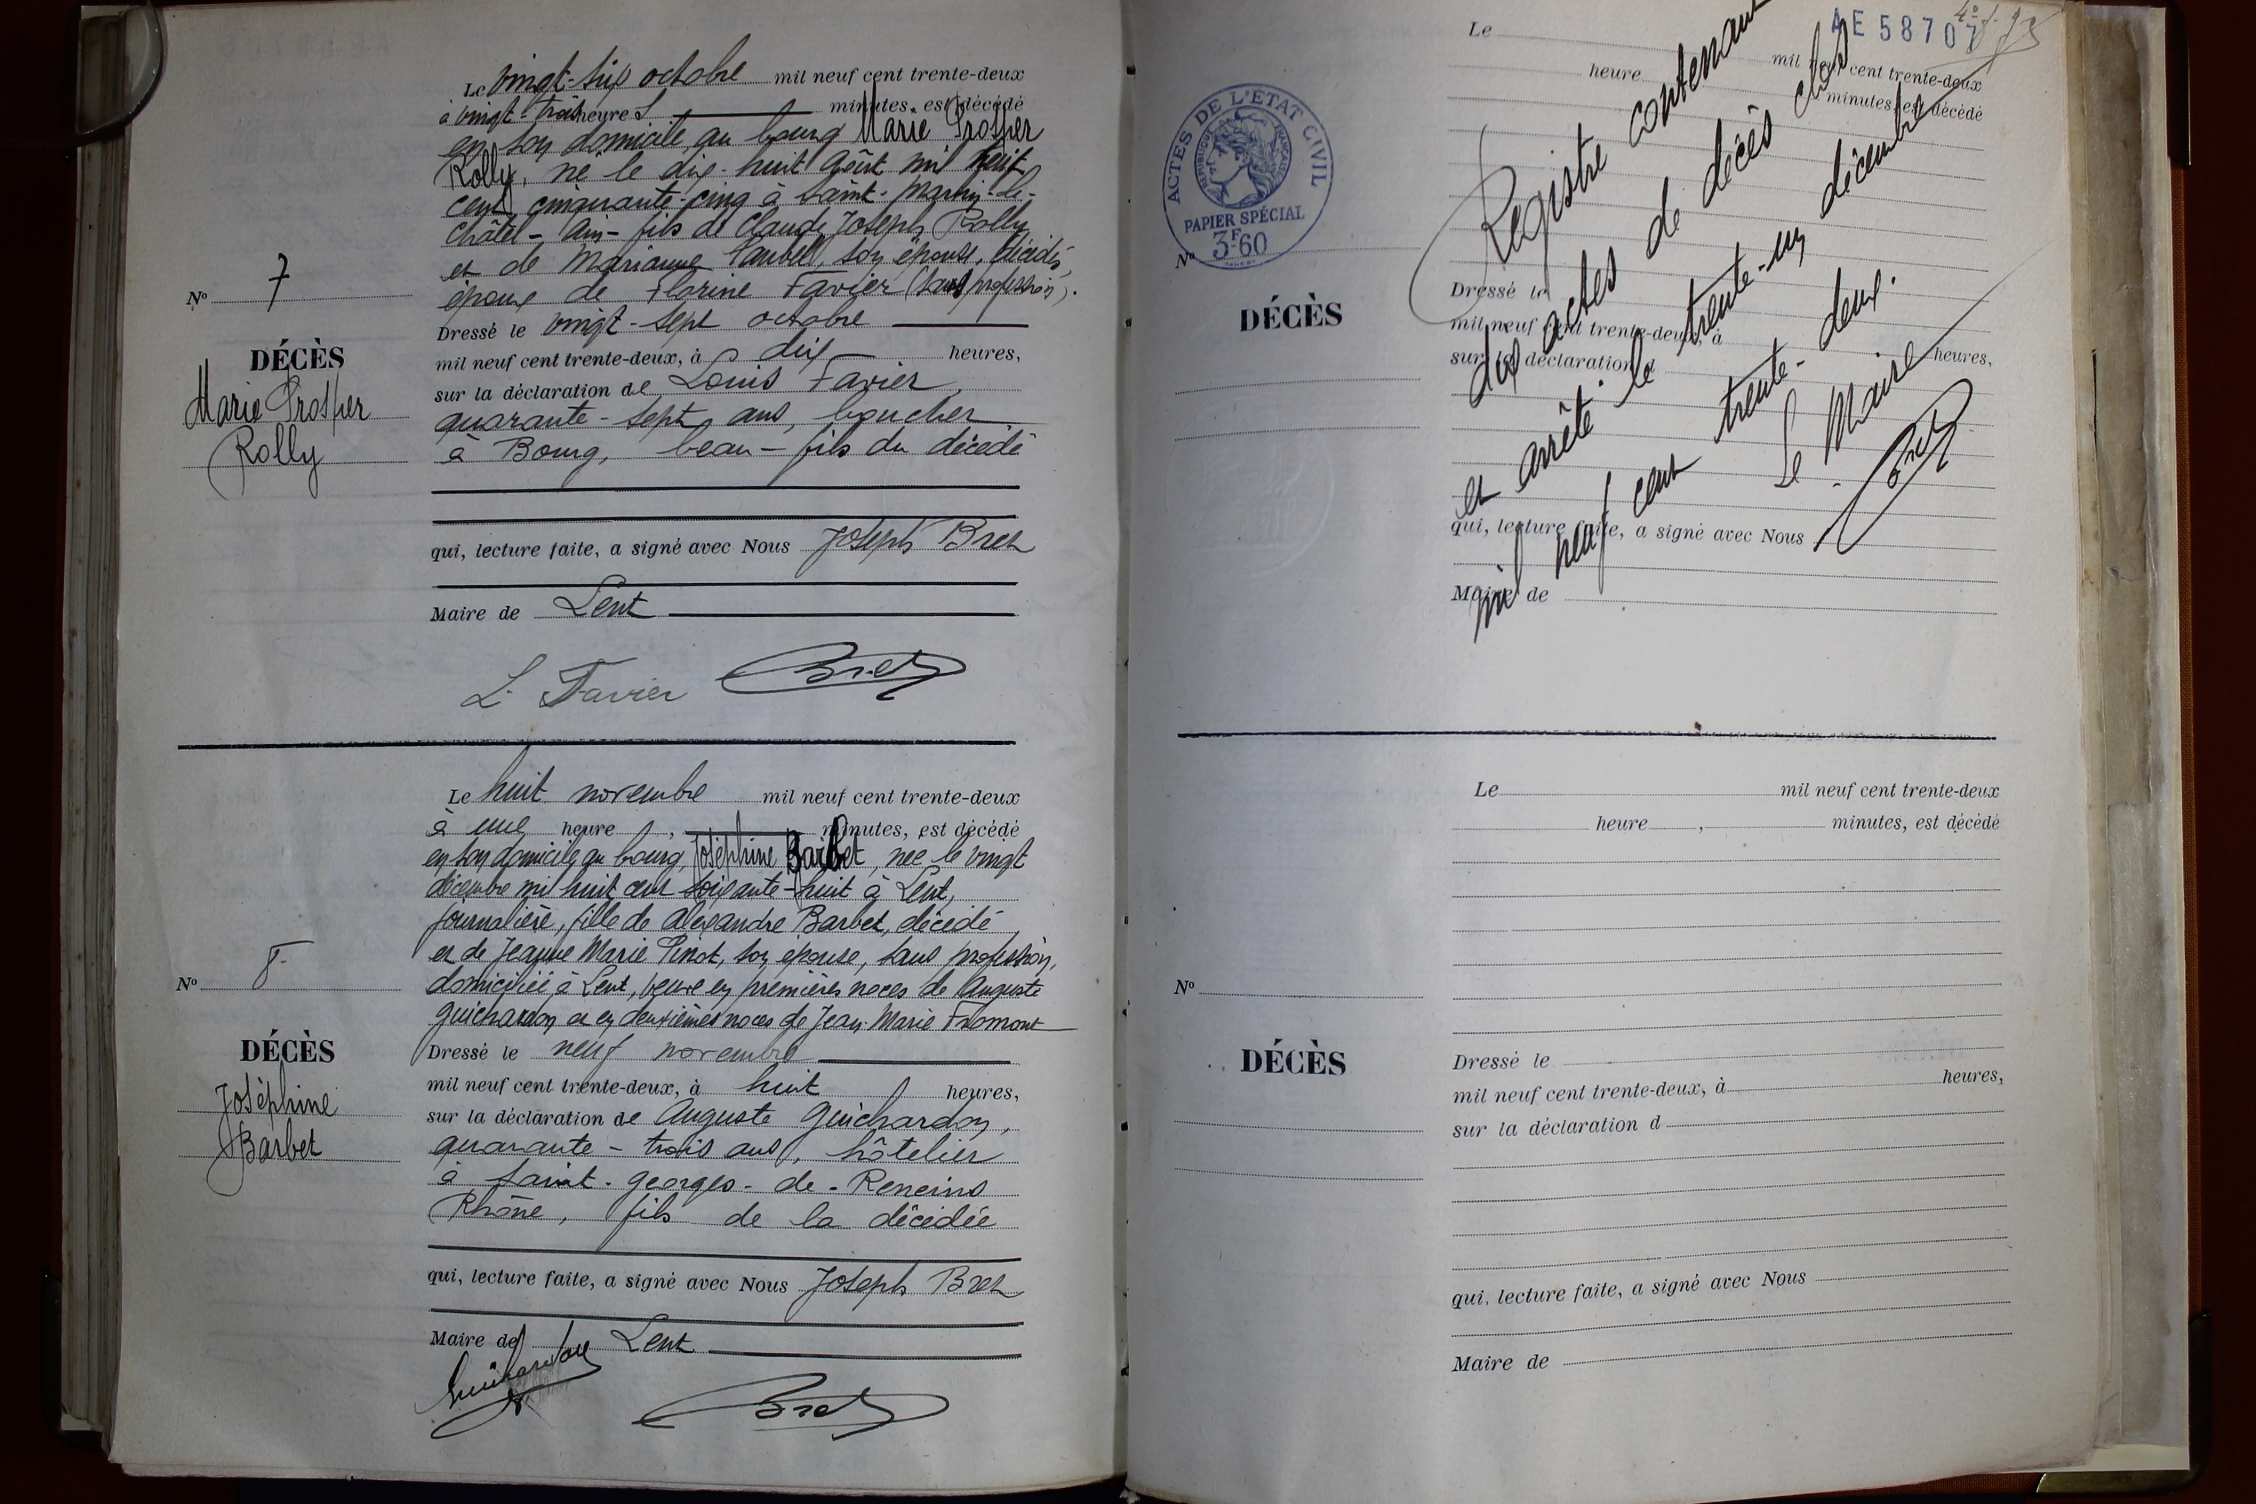 Le vingt-six octobre mil neuf cent trente-deux
à vingt-trois heures minutes, est décédé
en son domicile au bourg Marie Prosper
Rolly, né le dix-huit août mil huit
cent cinquante-cinq à Saint-Martin-le-
Châtel-Ain-fils de Claude Joseph Rolly
et de Marianne son épouse, décédés,
époux de Florine Favier (sans profession).
No 7
DÉCÈS
Marie Prosper
Rolly
Dressé le vingt-sept octobre
mil neuf cent trente-deux, à dix heures,
sur la déclaration de Louis Favier,
quarante-sept ans, boucher
à Bourg, beau-fils du décédé
qui, lecture faite, a signé avec Nous Joseph Bret
Maire de Lent
L. Favier Bret
Le huit novembre mil neuf cent trente-deux
à une heure, minutes, est décédé
en son domicile au bourg, Joséphine Barbet, née le vingt
décembre mil huit cent soixante-huit à Lent,
journalière, fille de Alexandre Barbet, décédé
et de Jeanne Marie Pinot, son épouse, sans profession,
domiciliée à Lent, veuve en premières noces de Auguste
Guichardon et en deuxièmes noces de Jean-Marie Fromont
No 8
DÉCÈS
Joséphine
Barbet
Dressé le neuf novembre
mil neuf cent trente-deux, à huit heures,
sur la déclaration de Auguste Guichardon,
quarante-trois ans, hôtelier
à Saint-Georges-de-Reneins
Rhône, fils de la décédée
qui, lecture faite, a signé avec Nous Joseph Bret
Maire de Lent
Guichardon
Bret
AE 58707
ACTES DE L'ETAT CIVIL
RÉPUBLIQUE FRANÇAISE
PAPIER SPÉCIAL
3F60
Le mil neuf cent trente-deux
heure minutes, est décédé
No
DÉCÈS
Dressé le
mil neuf cent trente-deux, à heures,
sur la déclaration d
qui, lecture faite, a signé avec Nous
Maire de
Registre contenant
des actes de décès clos
et arrêté le trente-un décembre
mil neuf cent trente-deux.
Le Maire
Bret
Le mil neuf cent trente-deux
heure, minutes, est décédé
No
DÉCÈS
Dressé le
mil neuf cent trente-deux, à heures,
sur la déclaration d
qui, lecture faite, a signé avec Nous
Maire de